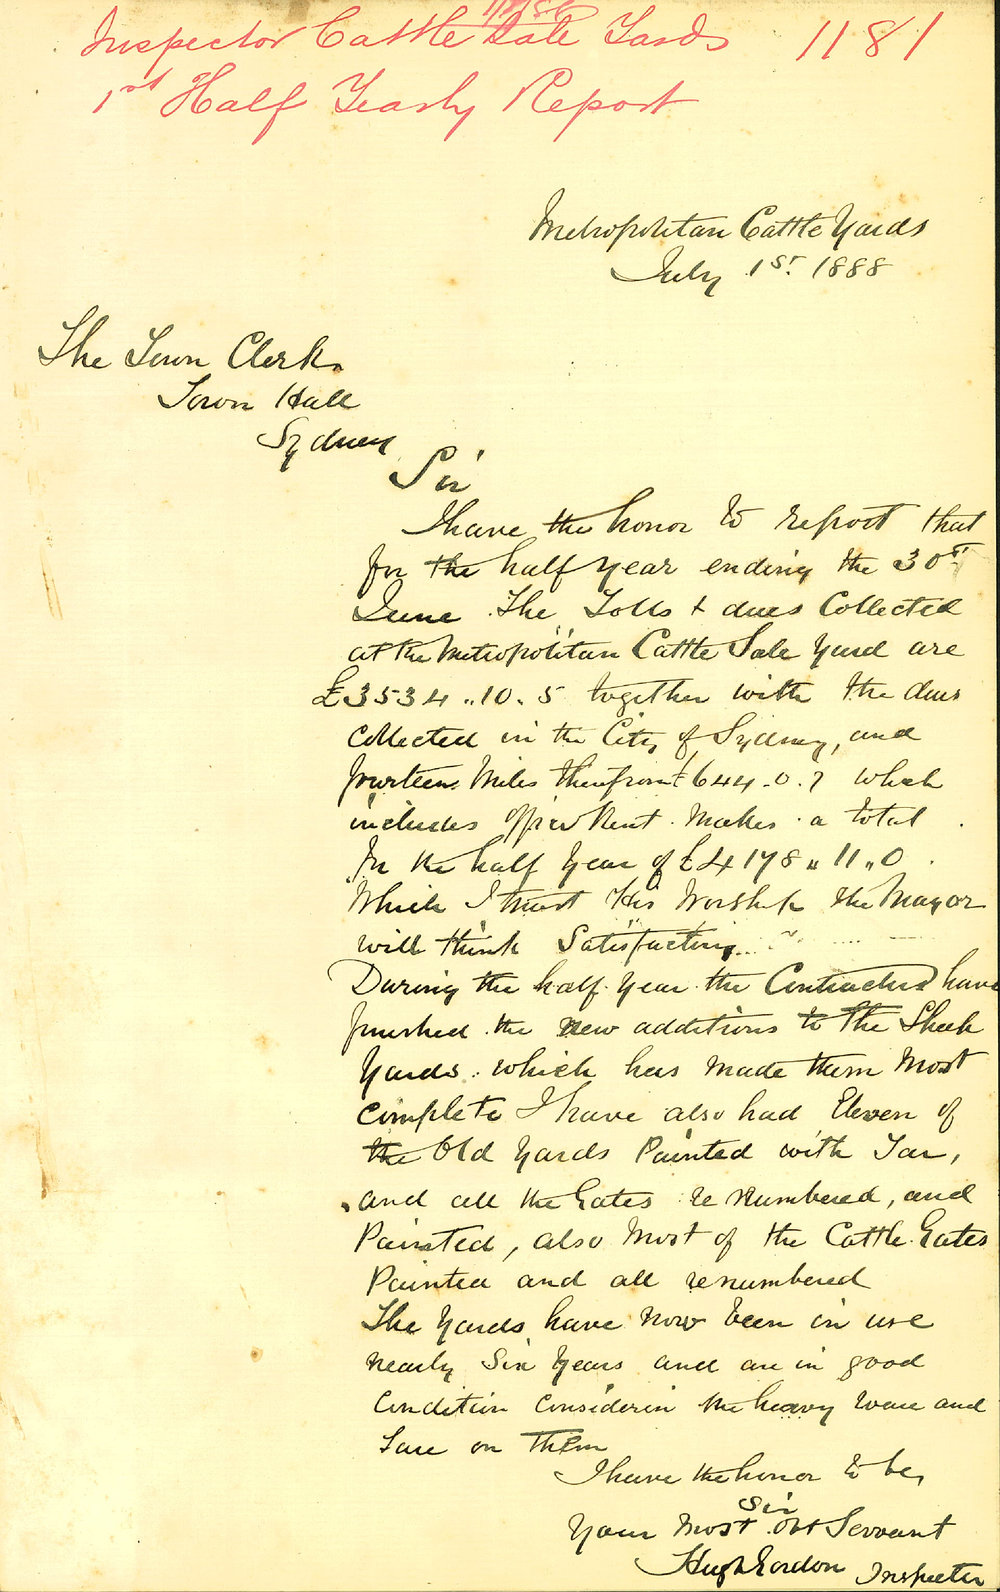 Inspector Cattle Sale Yards 1181
1st Half Yearly Report
Metropolitan Cattle Yards
July 1st. 1888
The Town Clerk.
Town Hall
Sydney
Sir
I have the honor to report that
for the half year ending the 30th
June. The Tolls & dues Collected
at the Metropolitan Cattle Sale Yard are
£3534..10.5 together with the dues
collected in the City of Sydney, and
fourteen Miles therefrom £644.0.7 which
includes Office Rent. Makes. a total.
In the half Year of £4178..11..0.
Which I trust His Worship the Mayor
will think Satisfactory...
During the half. year. the Contractors have
finished. the new additions to the Sheep
Yards. which has made them Most
complete I have also had Eleven of
the Old Yards Painted with Tar,
and all the Gates re numbered, and
Painted, also Most of the Cattle. Gates
Painted and all renumbered
The Yards have now been in use
nearly Six Years and are in good
Condition Considerin the heavy Ware and
Tare on them
I have the honor to be,
Sir
Your Most Obt Servant
Hugh Gordon Inspector